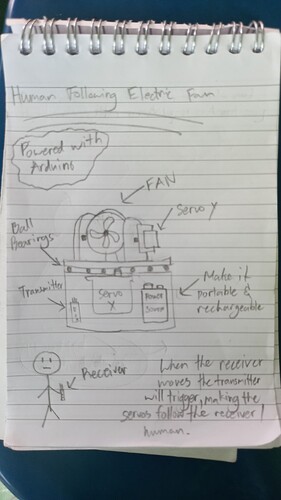 Human Following Electric Fan
Powered with
Arduino
FAN
Servo Y
Ball
Bearings
Transmitter
Servo
X
Power
Source
Make it
portable &
rechargeable
Receiver
When the receiver
moves the transmitter
will trigger, making the
servos follow the receiver/
human.